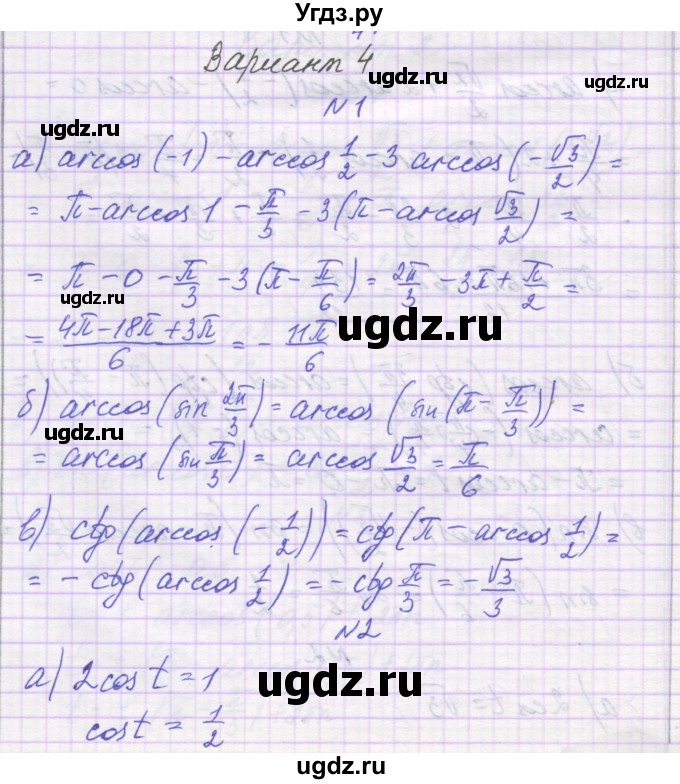 Угдз.ру
Вариант 4
ugdz.ru
N1
ugdz.ru
ugdz.ru
а) arccos (-1) - arccos 1/2 - 3 arccos (-√3/2) =
= π - arccos 1 - π/3 - 3(π - arccos √3/2) =
ugdz.ru
= π - 0 - π/3 - 3(π - π/6) = 2π/3 - 3π + π/2 =
ugdz.ru
= (4π - 18π + 3π)/6 = - 11π/6
ugdz.ru
б) arccos (sin 2π/3) = arccos (sin (π - π/3)) =
ugdz.ru
= arccos (sin π/3) = arccos √3/2 = π/6
ugdz.ru
в) ctg (arccos (-1/2)) = ctg (π - arccos 1/2) =
= - ctg (arccos 1/2) = - ctg π/3 = - √3/3
N2
ugdz.ru
а) 2cos t = 1
ugdz.ru
cos t = 1/2
ugdz.ru